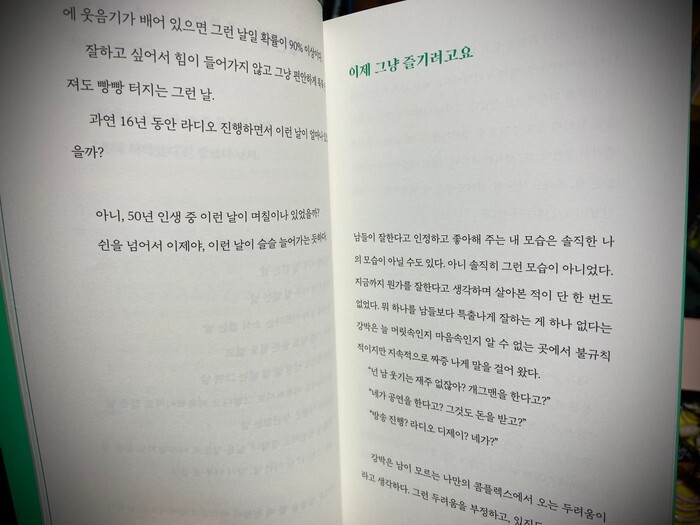 에 웃음기가 배어 있으면 그런 날일 확률이 90% 이상이다.
잘하고 싶어서 힘이 들어가지 않고 그냥 편안하게
져도 빵빵 터지는 그런 날.
과연 16년 동안 라디오 진행하면서 이런 날이 얼마나
을까?
아니, 50년 인생 중 이런 날이 며칠이나 있었을까?
쉰을 넘어서 이제야, 이런 날이 슬슬 늘어가는 듯하다.
이제 그냥 즐기려고요
남들이 잘한다고 인정하고 좋아해 주는 내 모습은 솔직한 나
의 모습이 아닐 수도 있다. 아니 솔직히 그런 모습이 아니었다.
지금까지 뭔가를 잘한다고 생각하며 살아본 적이 단 한 번도
없었다. 뭐 하나를 남들보다 특출나게 잘하는 게 하나 없다는
강박은 늘 머릿속인지 마음속인지 알 수 없는 곳에서 불규칙
적이지만 지속적으로 짜증 나게 말을 걸어 왔다.
“넌 남 웃기는 재주 없잖아? 개그맨을 한다고?”
“네가 공연을 한다고? 그것도 돈을 받고?”
“방송 진행? 라디오 디제이? 네가?”
강박은 남이 모르는 나만의 콤플렉스에서 오는 두려움이
라고 생각하다. 그런 두려움을 부정하고,